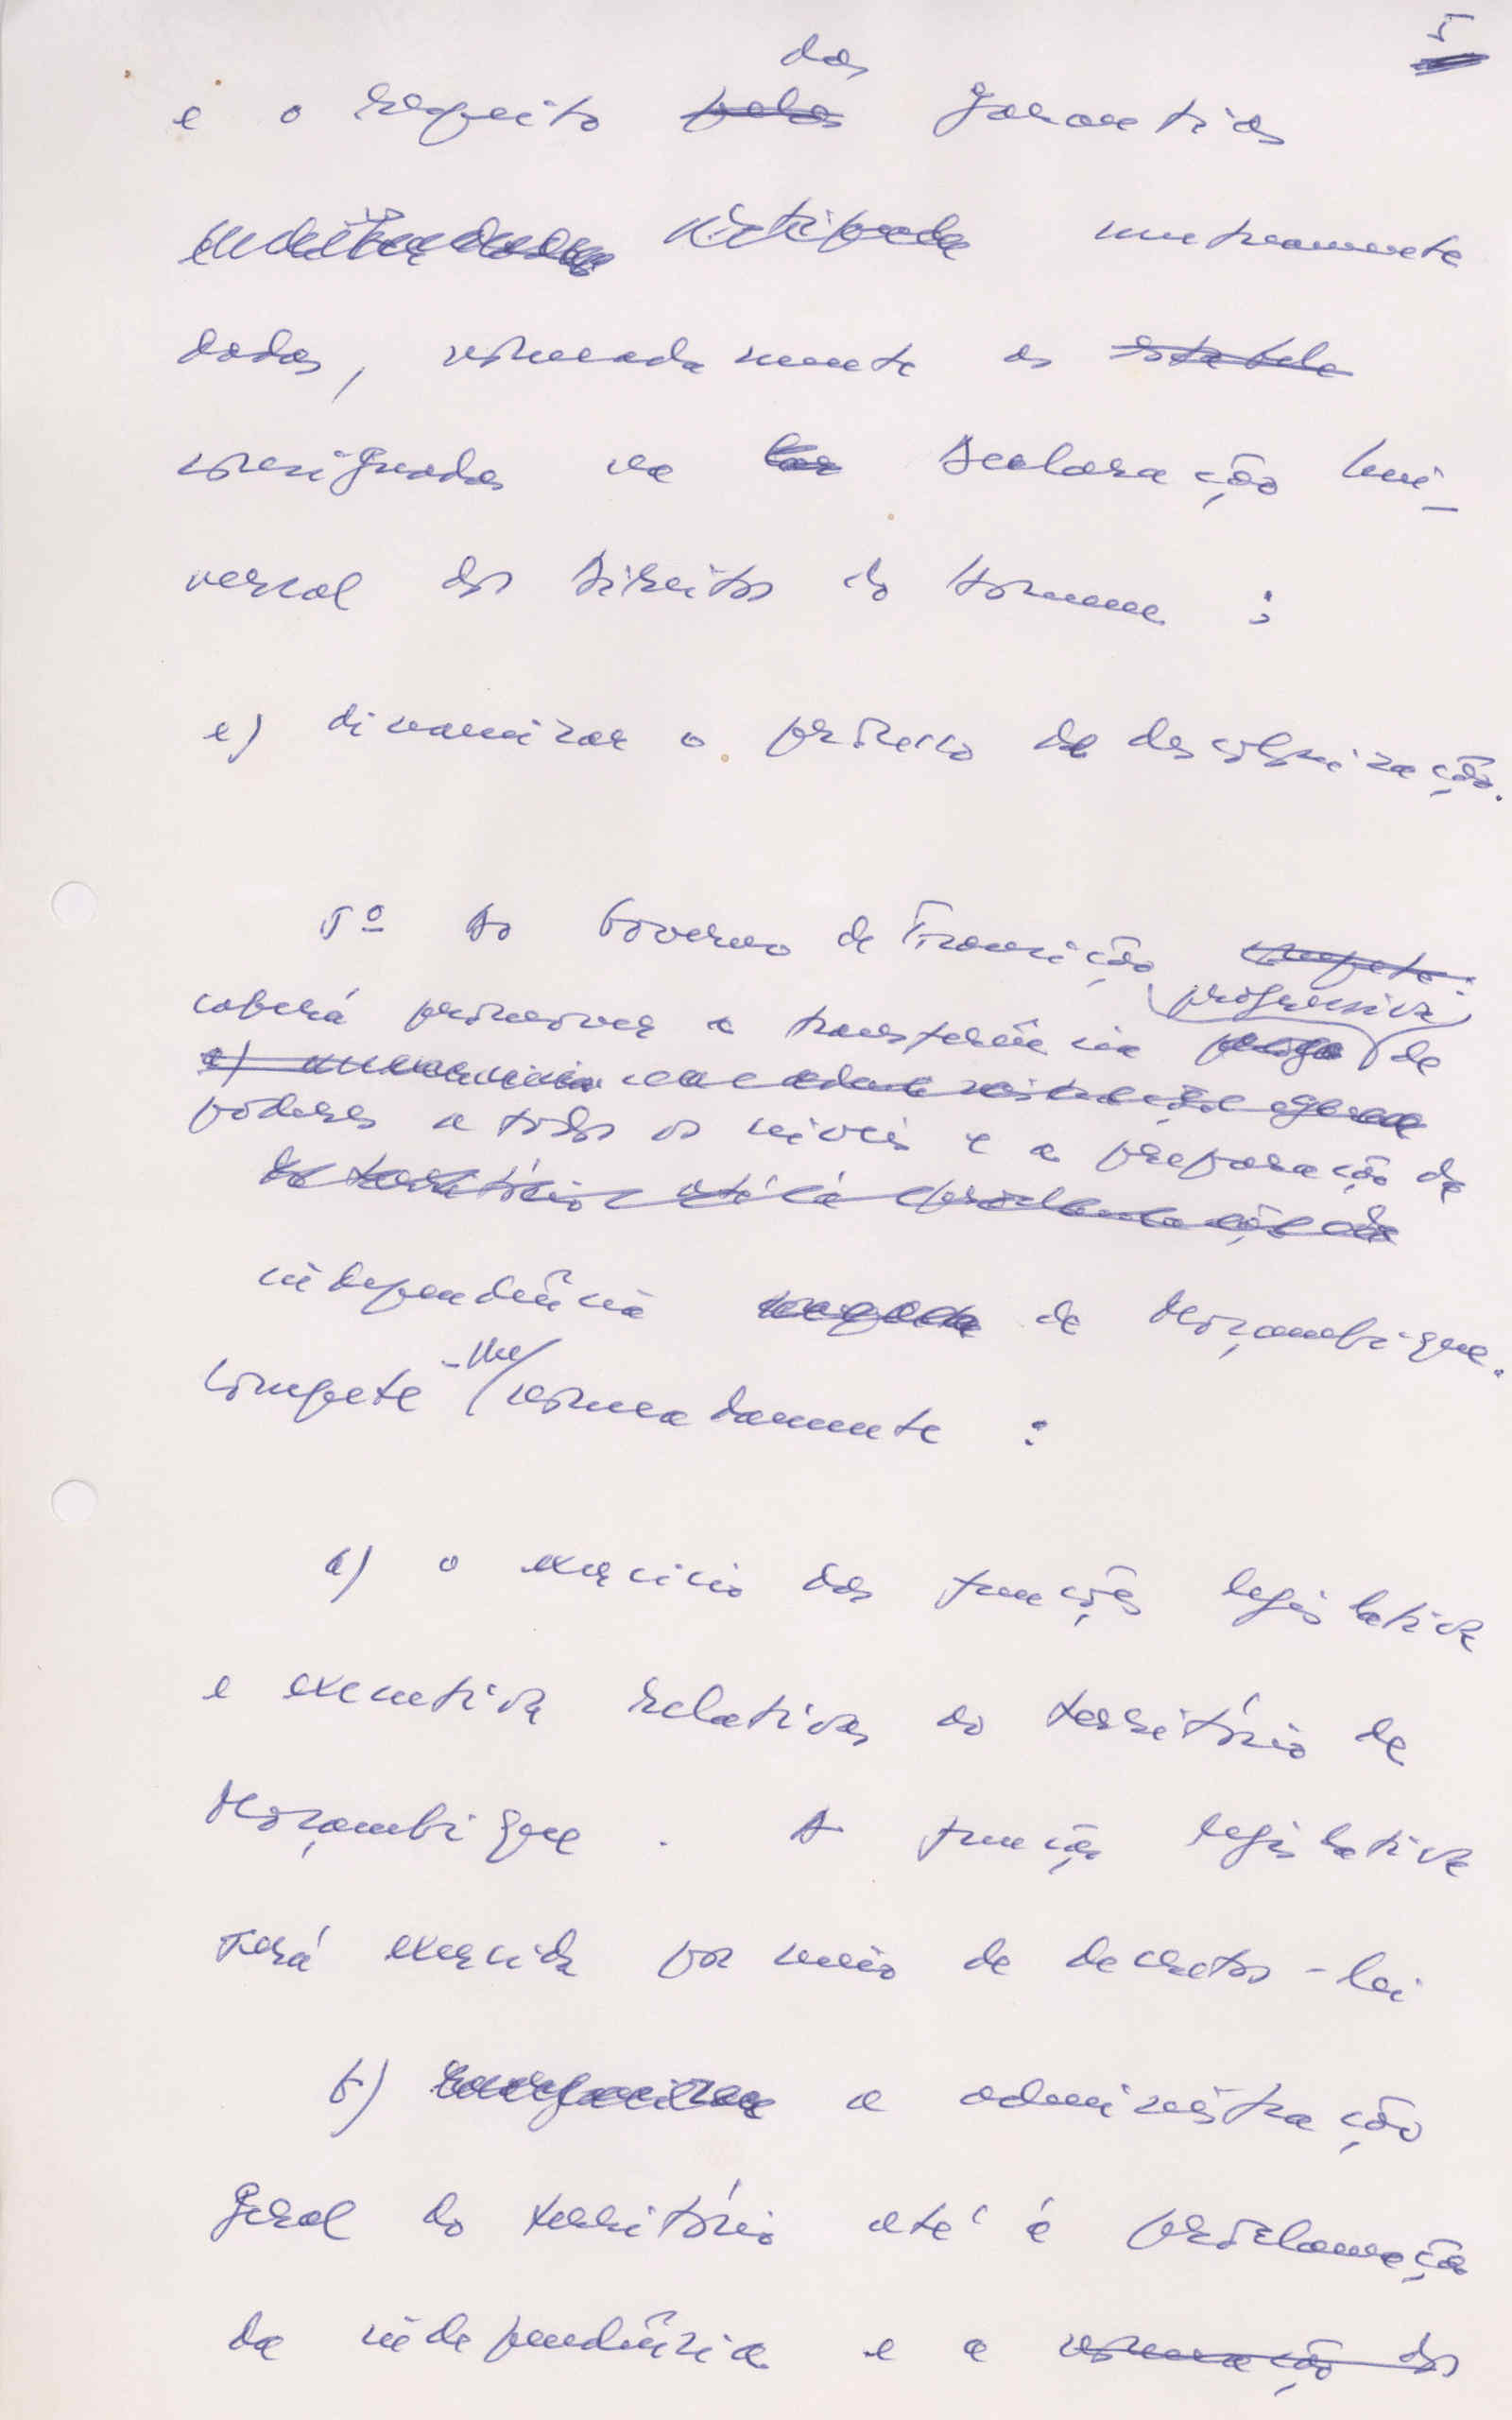 5
das
e o respeito pelas garantias
mutuamente
dadas, nomeadamente as estabele
consignadas na Declaração Uni-
versal dos Direitos do Homem ;
e) dinamizar o processo de descolonização.
5º Ao Governo de Transição compete:
progressiva
caberá promover a transferência de
a)
poderes a todos os níveis e a preparação da
do território até à proclamação da
independência de Moçambique.
Compete -lhe nomeadamente :
a) o exercício das funções legislativa
e executiva relativas ao território de
Moçambique . A função legislativa
será exercida por meio de decretos - lei
b) a administração
geral do território até à proclamação
da independência e a nomeação dos